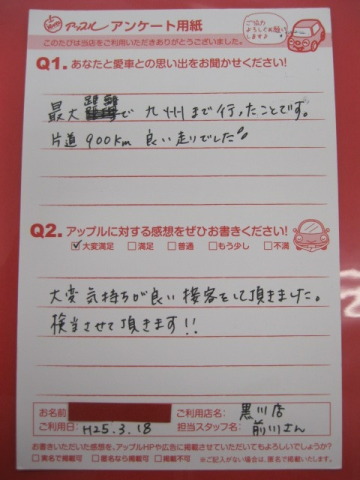 アップル アンケート用紙
ご協力
よろしくお願い
します♪
このたびは当店をご利用いただきありがとうございました。
Q1. あなたと愛車との思い出をお聞かせください!
最大で九州まで行ったことです。
片道900km 良い走りでした
Q2. アップルに対する感想をぜひお書きください!
☑大変満足 □満足 □普通 □もう少し □不満
大変気持ちが良い接客をして頂きました。
検当させて頂きます!!
お名前
ご利用店名: 黒川店
ご利用日: H25.3.18
担当スタッフ名: 前川さん
お書きいただいた感想を、アップルHPや広告に掲載させていただいてもよろしいでしょうか?
□実名で掲載可 □匿名なら掲載可 □掲載不可 ※ご記入がない場合は、匿名で掲載いたします。